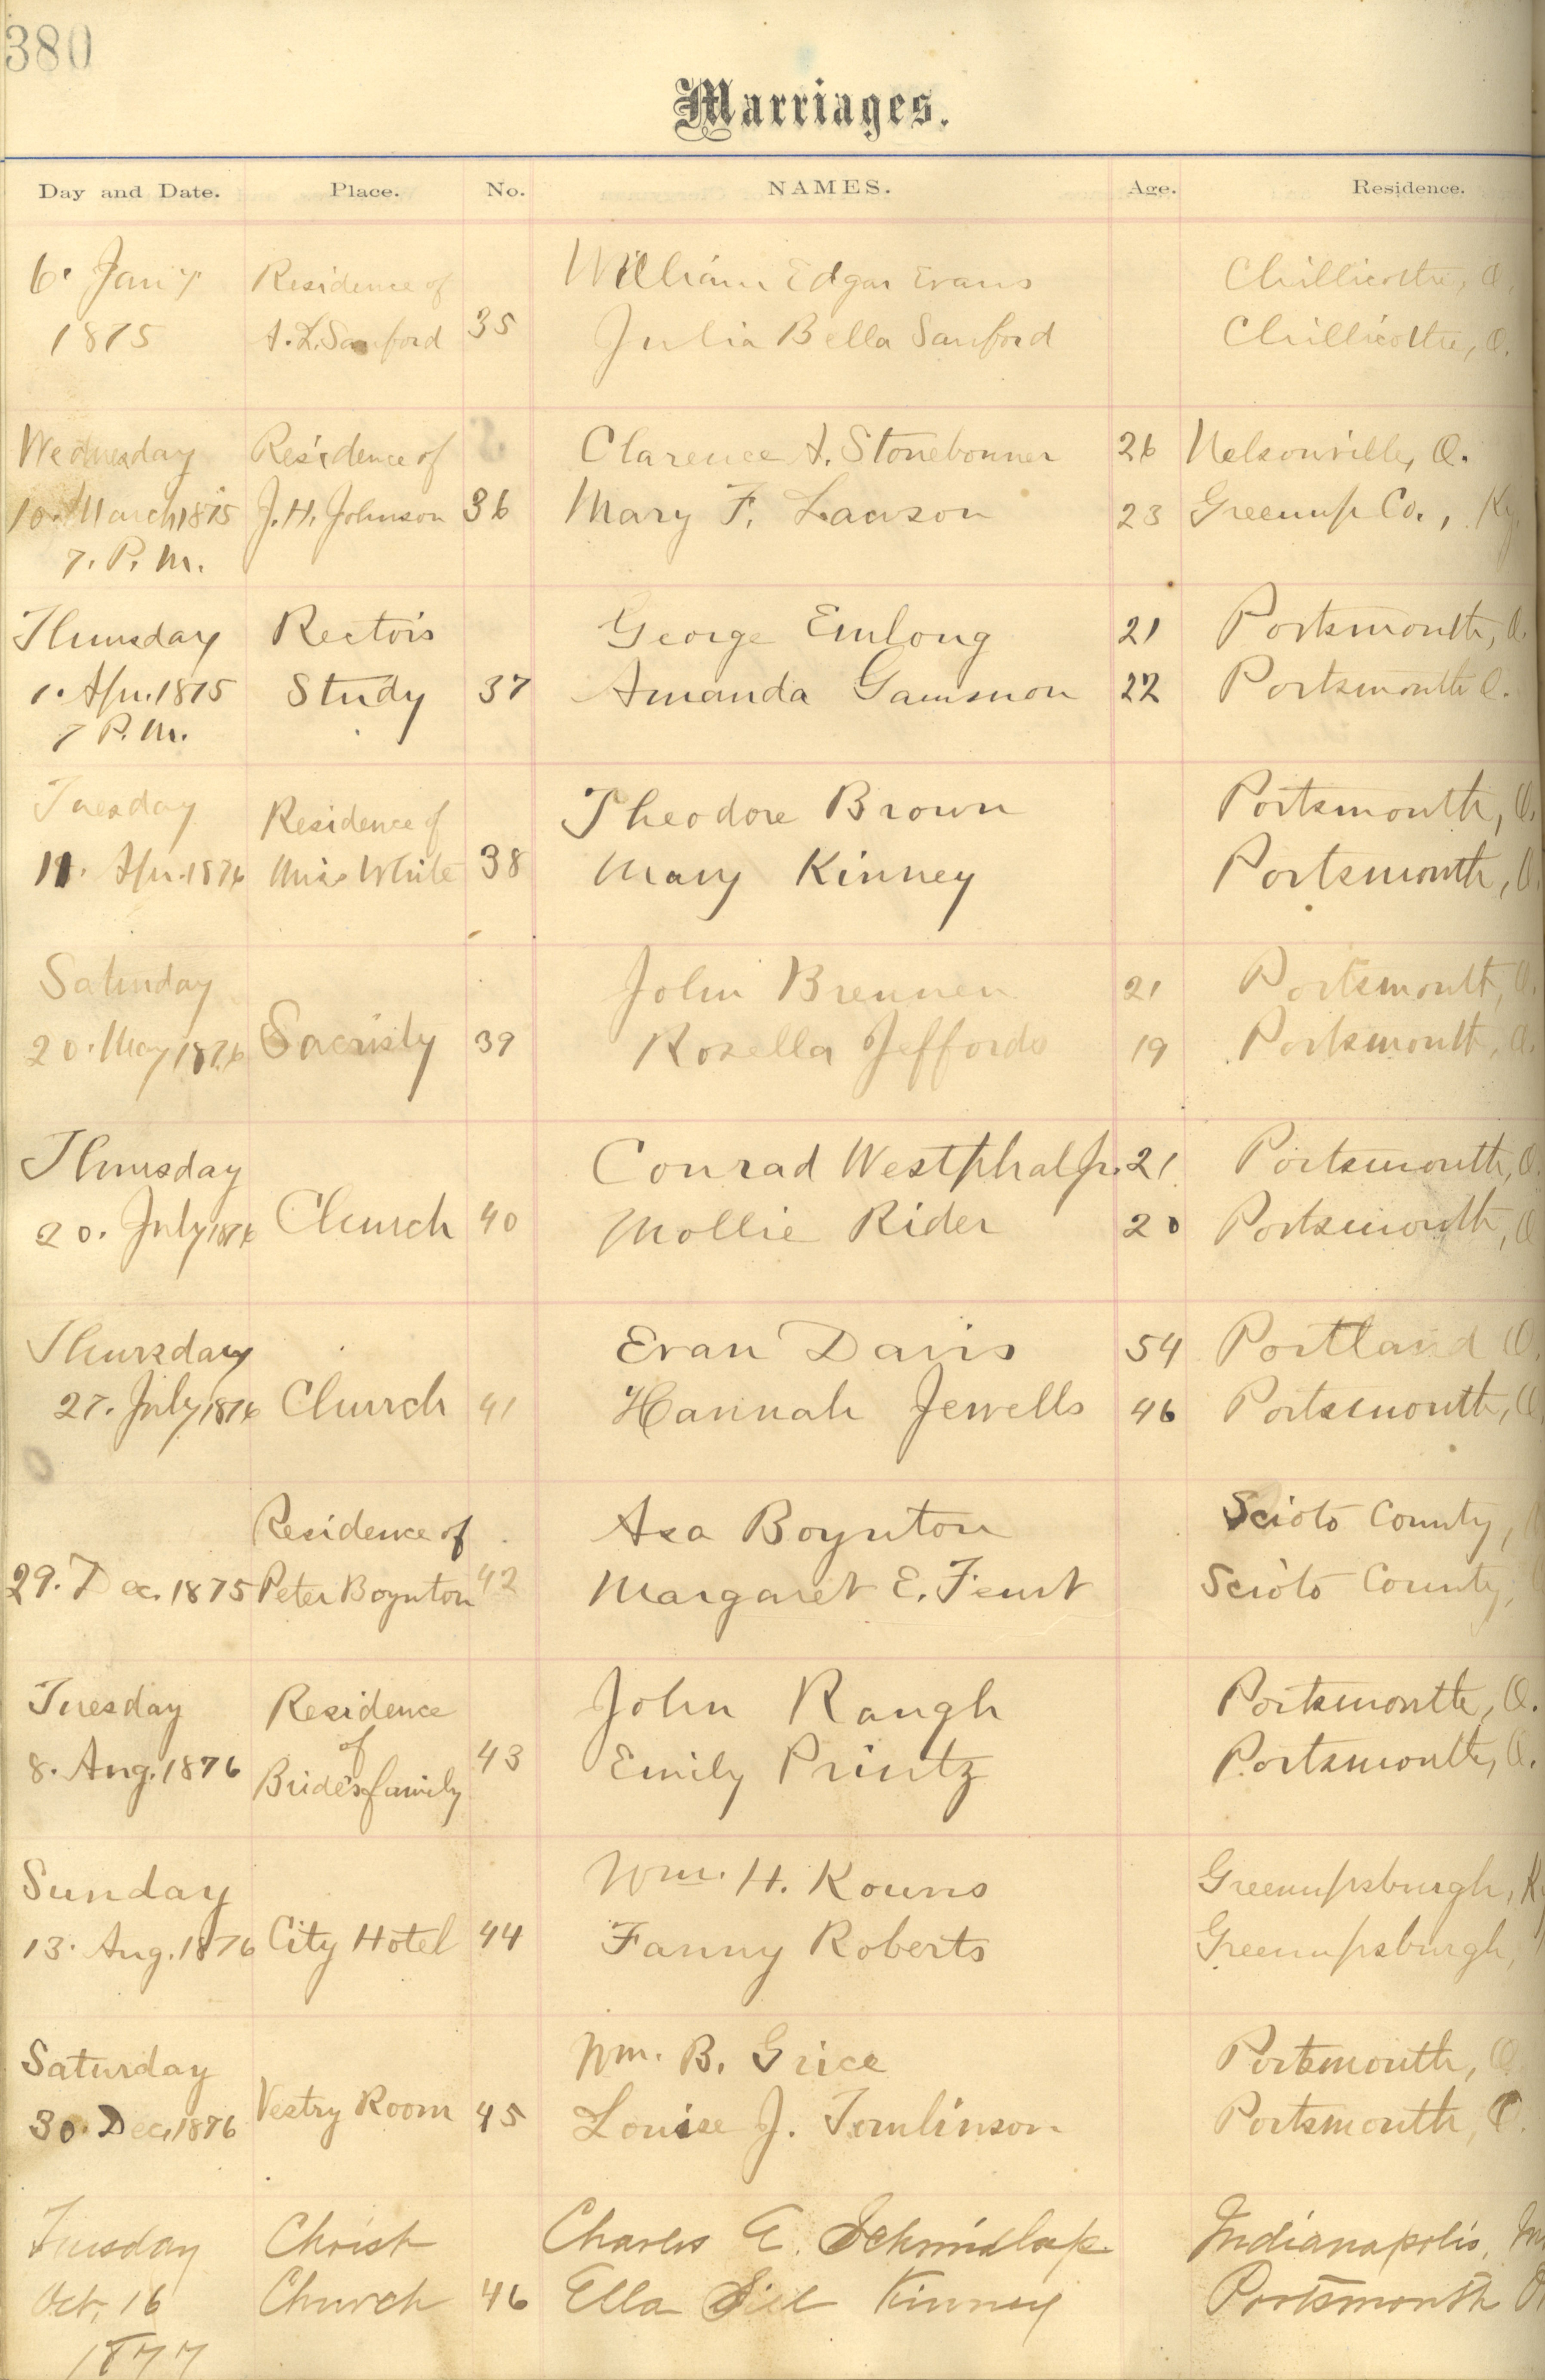 380
Marriages.
Day and Date. Place. No. NAMES. Age. Residence.
6. Jan'y Residence of William Edgar Evans Chillicothe, O.
1875 A. L. Sanford 35 Julia Bella Sanford Chillicothe, O.
Wednesday Residence of Clarence A. Stonebonner 26 Nelsonville, O.
10. March 1875 J. H. Johnson 36 Mary F. Lawson 23 Greenup Co., Ky.
7. P. M.
Thursday Rector's George Emlong 21 Portsmouth, O.
1. Apr. 1875 Study 37 Amanda Gammon 22 Portsmouth O.
7 P. M.
Tuesday Residence of Theodore Brown Portsmouth, O.
11. Apr. 1876 White 38 Mary Kinney Portsmouth, O.
Saturday John Brennen 21 Portsmouth, O.
20. May 1876 Sacristy 39 Rosella Jeffords 19 Portsmouth, O.
Thursday Conrad Westphal Jr. 21 Portsmouth, O.
20. July 1876 Church 40 Mollie Rider 20 Portsmouth, O
Thursday Evan Davis 54 Portland O.
27. July 1876 Church 41 Hannah Jewells 46 Portsmouth, O.
Residence of Asa Boynton Scioto County,
29. Dec. 1875 Peter Boynton 42 Margaret E. Feurt Scioto County,
Tuesday Residence John Raugh Portsmouth, O.
of
8. Aug. 1876 Bride's family 43 Emily Printz Portsmouth, O.
Sunday Wm. H. Kouns Greenupsburgh, Ky
13. Aug. 1876 City Hotel 44 Fanny Roberts Greenupsburgh,
Saturday Wm. B. Grice Portsmouth, O.
30. Dec. 1876 Vestry Room 45 Louise J. Tomlinson Portsmouth, O.
Tuesday Christ Charles E. Schmidlap Indianapolis,
Oct. 16 Church 46 Ella Kinney Portsmouth O.
1877